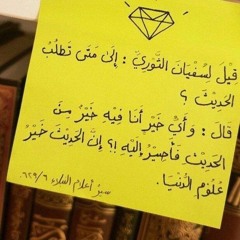 قِيْلَ لِسُفْيَانَ الثَّوْرِيِّ : إِلَىٰ مَتَىٰ تَطْلُبُ
الحَدِيْثَ ؟
قَالَ : وَأَيُّ خَيْرٍ أَنَا فِيْهِ خَيْرٌ مِنَ
الحَدِيْثِ فَأَصِيْرُ إِلَيْهِ !؟ إِنَّ الحَدِيْثَ خَيْرُ
عُلُوْمِ الدُّنْيَا.
سير أعلام النبلاء ٦٢٩/٦.